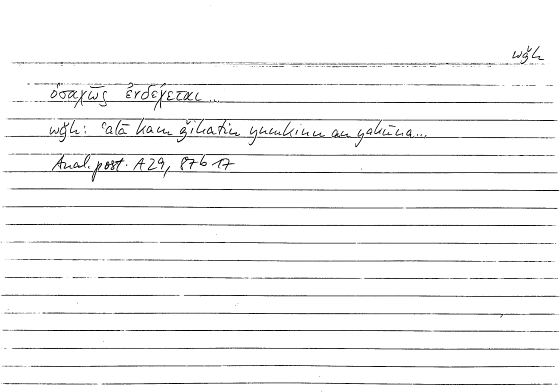 wǧh
ὁσαχῶς ἐνδέχεται...
wǧh: ʿalā kam ǧihatin yumkinu an yakūna...
Anal. post. A 29, 87b17